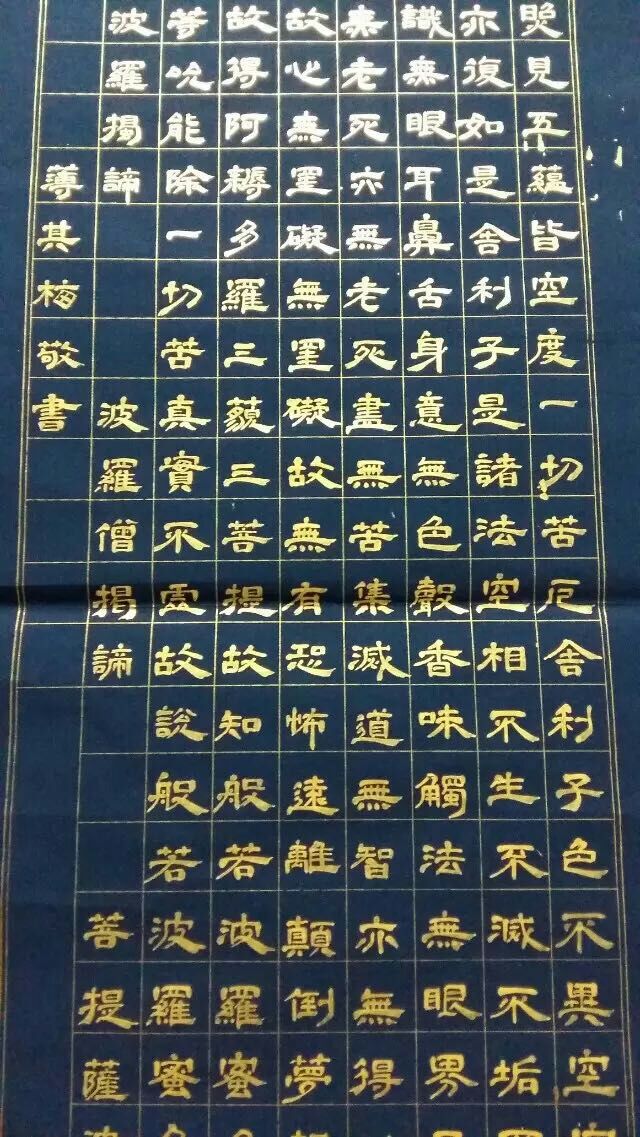 照見五蘊皆空度一切苦厄舍利子色不異空
亦復如是舍利子是諸法空相不生不滅不垢
識無眼耳鼻舌身意無色聲香味觸法無眼界
無老死亦無老死盡無苦集滅道無智亦無得
故心無罣礙無罣礙故無有恐怖遠離顛倒夢
故得阿耨多羅三藐三菩提故知般若波羅蜜
等咒能除一切苦真實不虛故說般若波羅蜜
波羅揭諦 波羅僧揭諦 菩提薩
薄其梅敬書